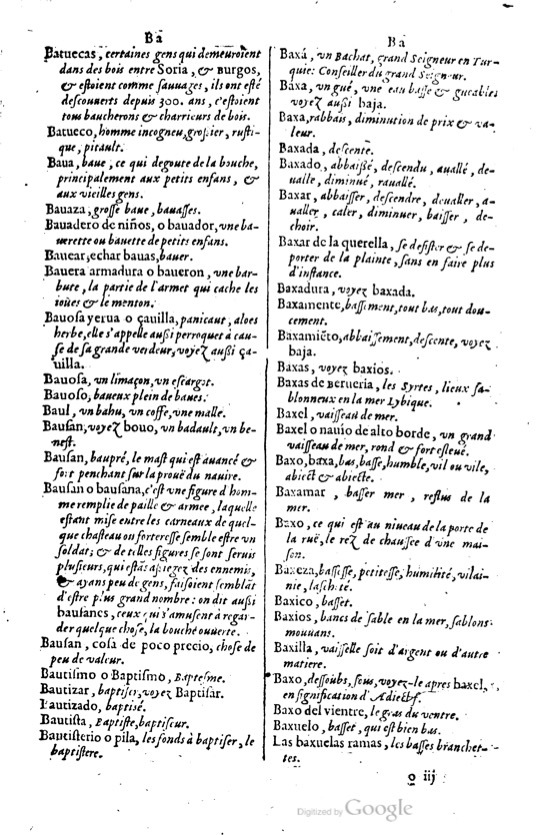 Ba
Batuecas, certaines gens qui demeuroient
dans des bois entre Soria, & Burgos,
& estoient comme sauuages, ils ont esté
descouuerts depuis 300. ans, c'estoient
tous bucherons & charrieurs de bois.
Batueco, homme incogneu, grossier, rusti-
que, pitault.
Baua, baue, ce qui degoute de la bouche,
principalement aux petits enfans, &
aux vieilles gens.
Bauaza, grosse baue, bauasses.
Bauadero de niños, o bauador, vne ba-
uerette ou bauette de petits enfans.
Bauear, echar bauas, bauer.
Bauera armadura o baueron, vne bar-
bute, la partie de l'armet qui cache les
ioües & le menton.
Bauosa yerua o çauilla, panicaut, aloes
herbe, elle s'appelle aussi perroquet à cau-
se de sa grande verdeur, voyez aussi ça-
uilla.
Bauosa, vn limaçon, vn escargot.
Bauoso, baueux plein de baues.
Baul, vn bahu, vn coffe, vne malle.
Bausan, voyez bouo, vn badault, vn be-
nest.
Bausan, baupré, le mast qui est auancé &
fort penchant sur la prouë du nauire.
Bausan o bausana, c'est vne figure d'hom-
me remplie de paille & armee, laquelle
estant mise entre les carneaux de quel-
que chasteau on forteresse semble estre vn
soldat; & de telles figures se sont seruis
plusieurs, qui estãs assiegez des ennemis,
& ayans peu de gens, faisoient semblãt
d'estre plus grand nombre: on dit aussi
bausanes, ceux qui s'amusent à regar-
der quelque chose, la bouche ouuerte.
Bausan, cosa de poco precio, chose de
peu de valeur.
Bautismo o Baptismo, Baptesme.
Bautizar, baptiser, voyez Baptisar.
Bautizado, baptisé.
Bautista, Baptiste, baptiseur.
Bautisterio o pila, les fonds à baptiser, le
baptistere.
Ba
Baxá, vn Bachat, grand Seigneur en Tur-
quie: Conseiller du grand Seigneur.
Baxa, vn gué, vne eau basse & gueables
voyez aussi baja.
Baxa, rabbais, diminution de prix & va-
leur.
Baxada, descente.
Baxado, abbaissé, descendu, auallé, de-
ualle, diminué, rauallé.
Baxar, abbaisser, descendre, deualler, a-
ualler, caler, diminuer, baisser, de-
choir.
Baxar de la querella, se desister & se de-
porter de la plainte, sans en faire plus
d'instance.
Baxadura, voyez baxada.
Baxamente, bassement, tout bas, tout dou-
cement.
Baxamiẽto, abbaissement, descente, voyez
baja.
Baxas, voyez baxios.
Baxas de Berueria, les Syrtes, lieux sa-
blonneux en la mer Lybique.
Baxel, vaisseau de mer.
Baxel o nauio de alto borde, vn grand
vaisseau de mer, rond & fort esleué.
Baxo, baxa, bas, basse, humble, vil ou vile,
abiect & abiecte.
Baxamar, basser mer, reflus de la
mer.
Baxo, ce qui est au niueau de la porte de
la ruë, le rez de chaussee d'vne mai-
son.
Baxeza, bassesse, petitesse, humilité, vilai-
nie, lascheté.
Baxico, basset.
Baxios, bancs de sable en la mer, sablons
mouuans.
Baxilla, vaisselle soit d'argent ou d'autre
matiere.
Baxo, dessoubs, sous, voyez-le apres baxel,
en signification d'Adiectif.
Baxo del vientre, le gras du ventre.
Baxuelo, basset, qui est bien bas.
Las baxuelas ramas, les basses branchet-
tes.
o iij
Digitized by Google